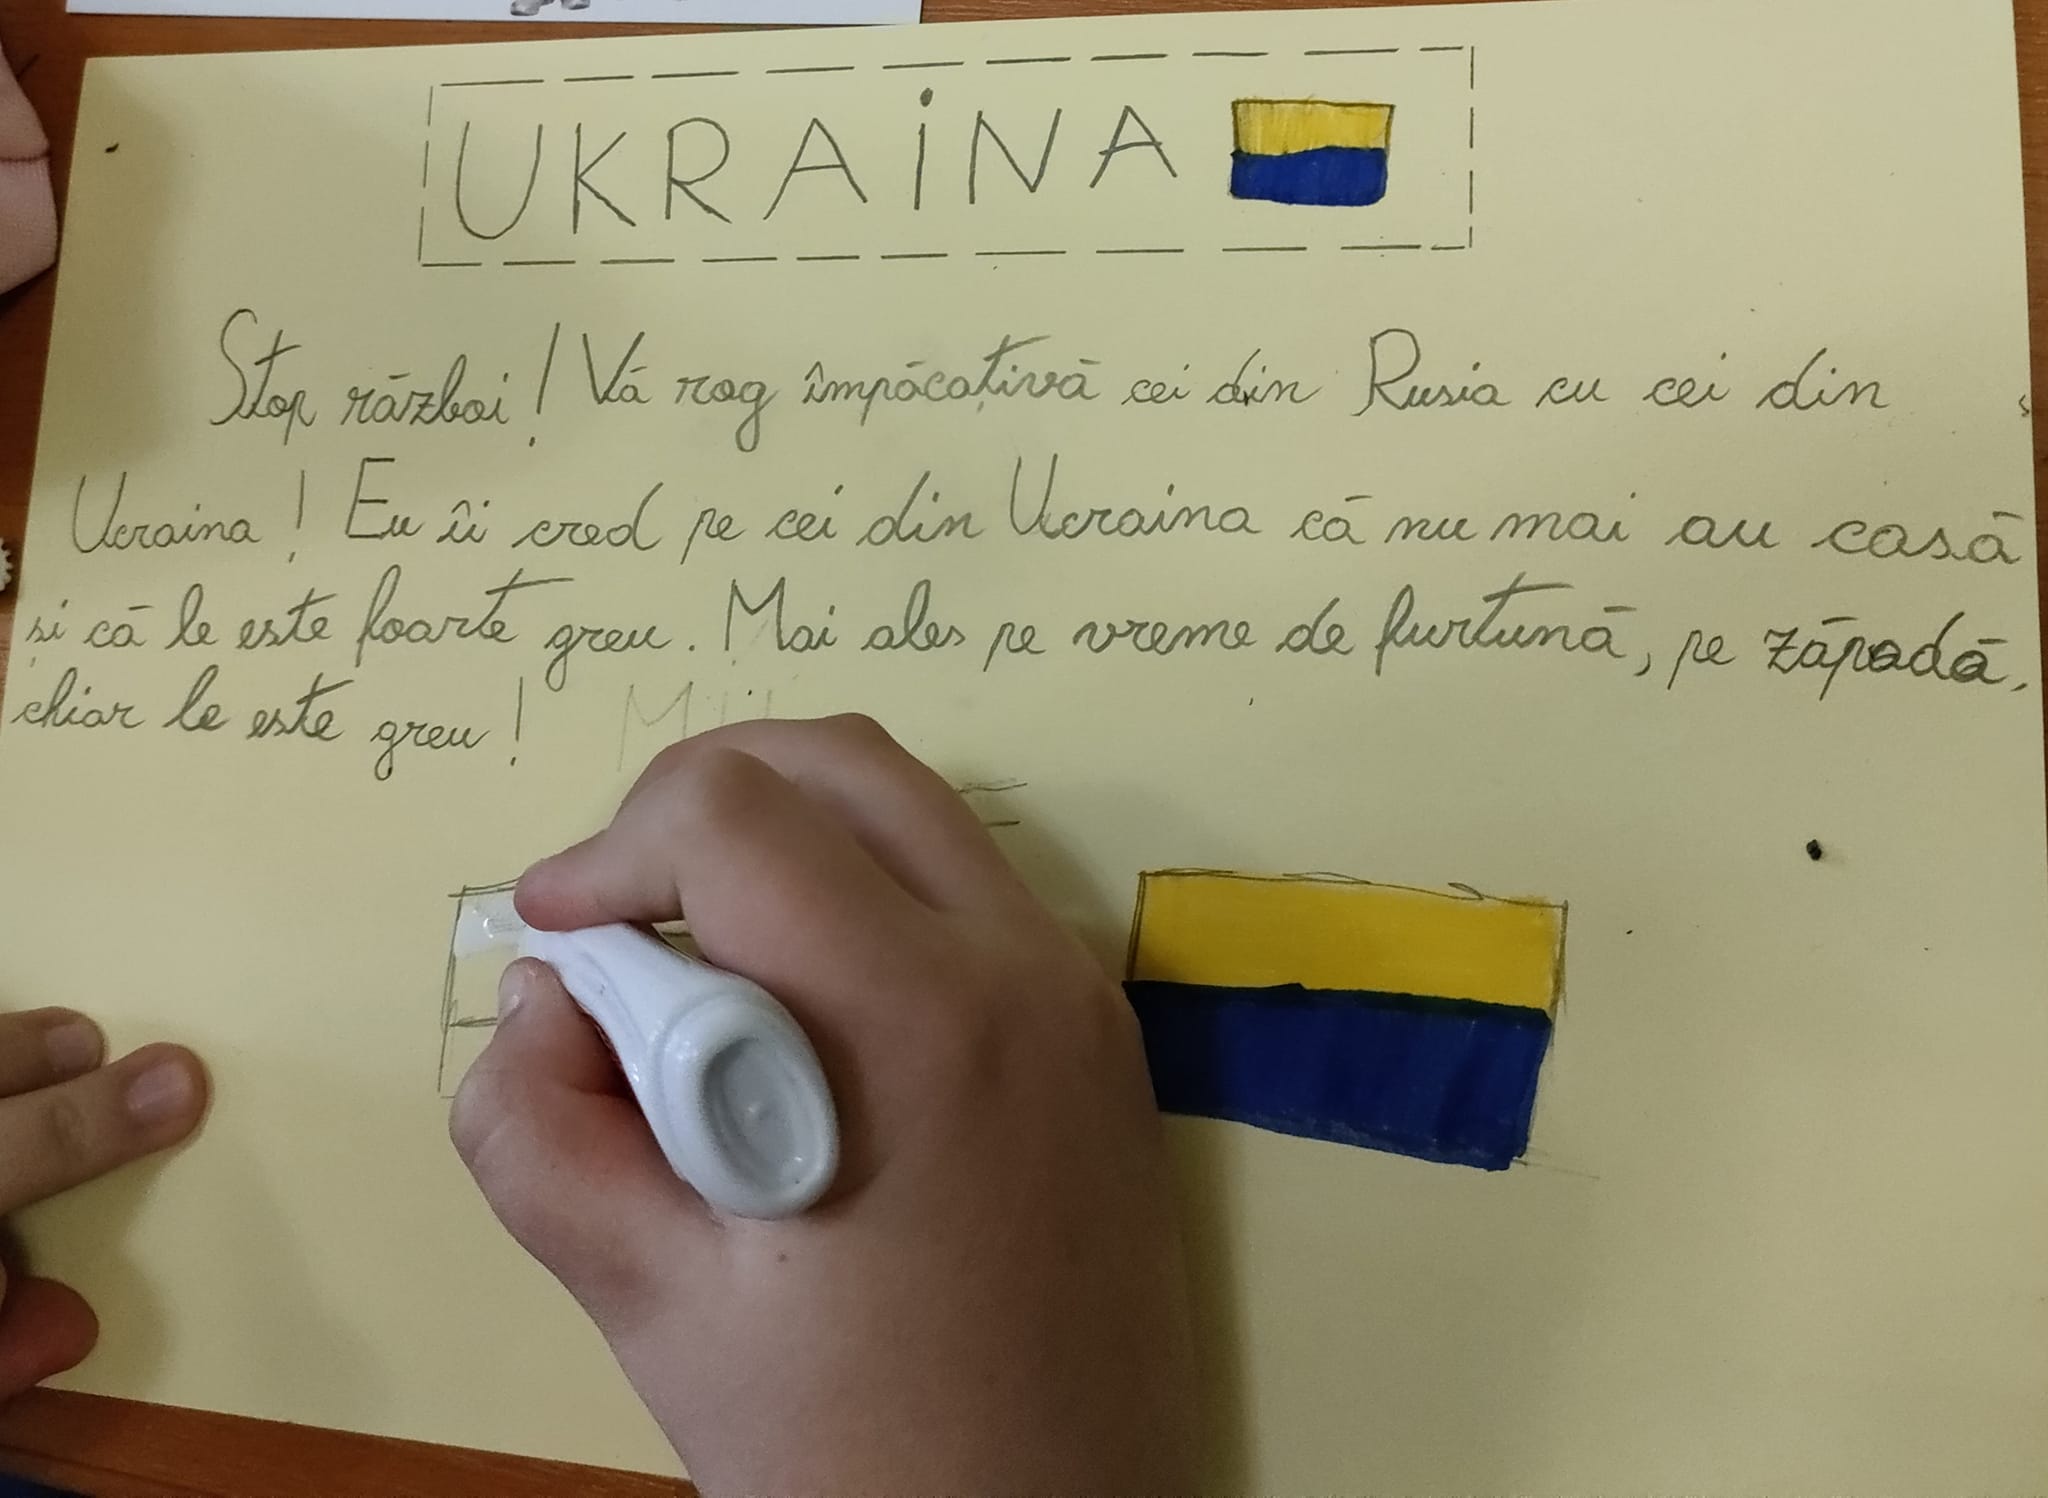 UKRAiNA
Stop război! Vă rog împăcațivă cei din Rusia cu cei din
Ucraina! Eu îi cred pe cei din Ucraina că nu mai au casă
și că le este foarte greu. Mai ales pe vreme de furtună, pe zăpadă,
chiar le este greu!